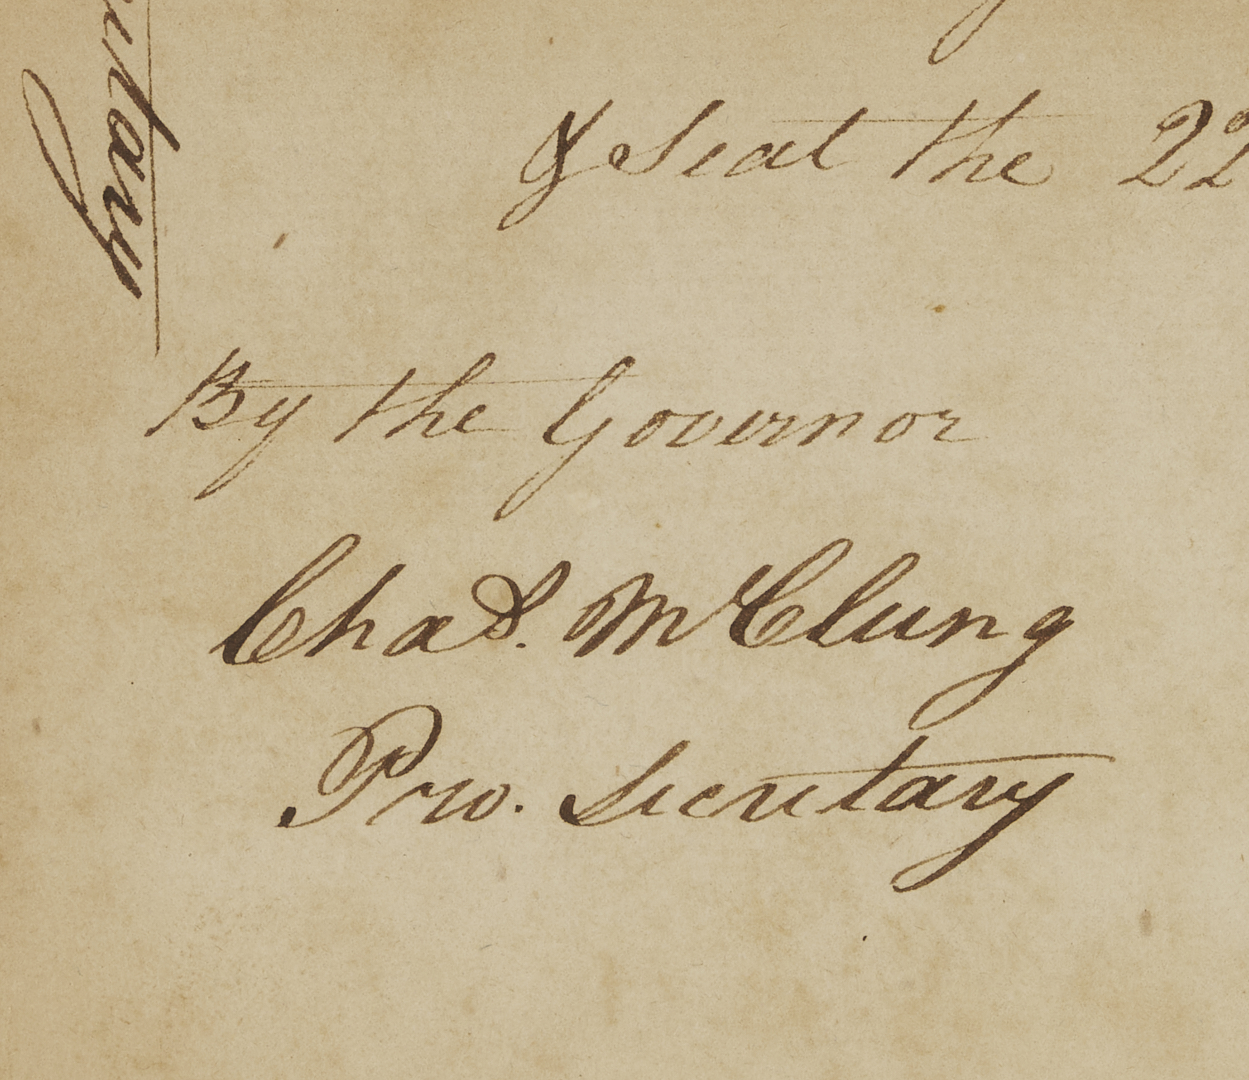 & Seal the 22
By the Governor
Chas. McClung
Pro. Secretary